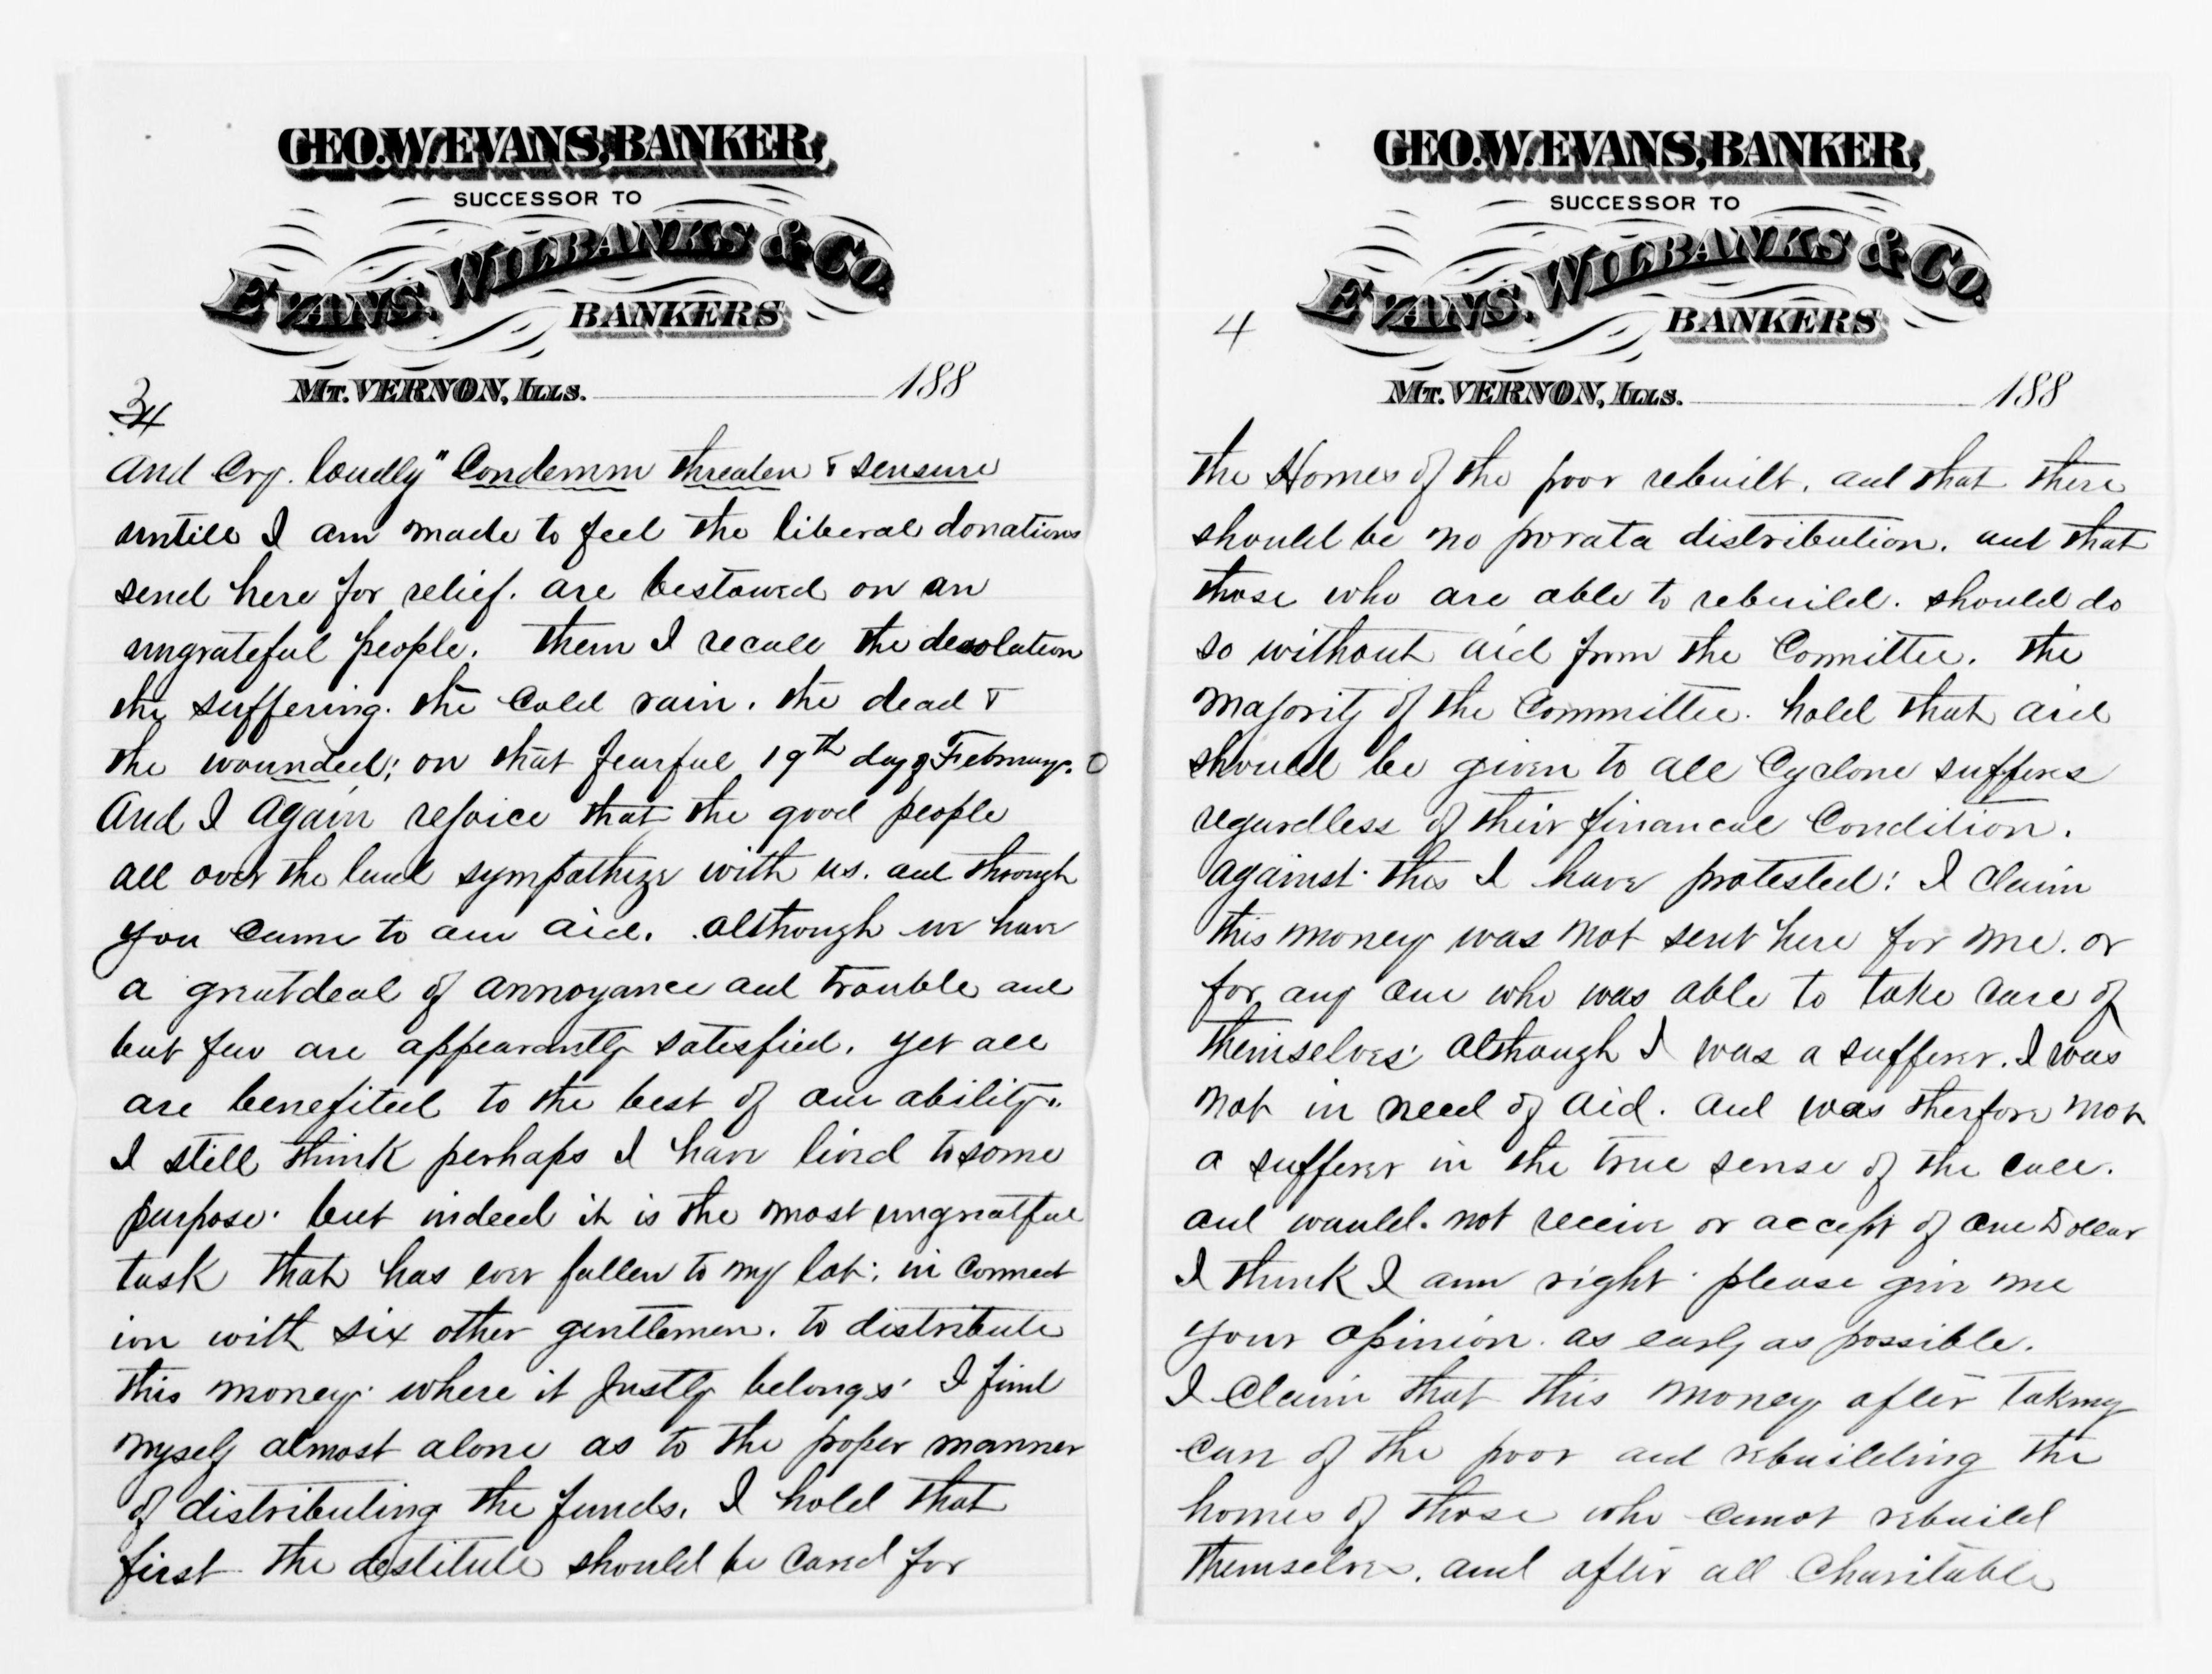 GEO. W. EVANS, BANKER,
SUCCESSOR TO
EVANS, WILBANKS & CO.
BANKERS
MT. VERNON, ILLS. 188
3
And Cry. loudly" Condemm threaten & sensure
untill I am made to feel the liberal donations
send here for relief. are bestowed on an
ungrateful people. them I recall the desolation
the suffering. the Cold rain. the dead &
the wounded; on that fearful 19th day of February. O
And I Again rejoice that the good people
all over the land sympathize with us. and through
you came to our aid. although we have
a great deal of annoyance and trouble and
but few are appearantly satesfied. yet all
are benefited to the best of our ability.
I still think perhaps I have lived to some
purpose. but indeed it is the most ungreatful
task that has ever fallen to my lot; in connect
ion with six other gentlemen. to distribute
this money. where it Justly belongs. I find
myself almost alone as to the proper manner
of distributing the funds. I hold that
first the destitute should be cared for
GEO. W. EVANS, BANKER,
SUCCESSOR TO
EVANS, WILBANKS & CO.
BANKERS
4
MT. VERNON, ILLS. 188
the Homes of the poor rebuilt. and that there
should be no prorata distribution. and that
those who are able to rebuild. should do
so without aid from the Committee. the
majority of the Committee. hold that aid
should be given to all Cyclone suffers
regardless of their financeal Condition.
against this I have protested: I claim
this money was not sent here for me. or
for any one who was able to take care of
themselves. although I was a sufferer. I was
not in need of aid. and was therfore not
a sufferer in the true sense of the call.
and would. not receive or accept of one Dollar
I think I am right. please give me
your opinion. as early as possible.
I claim that this money after taking
care of the poor and rebuilding the
homes of those who cannot rebuild
themselves. and after all Charitable